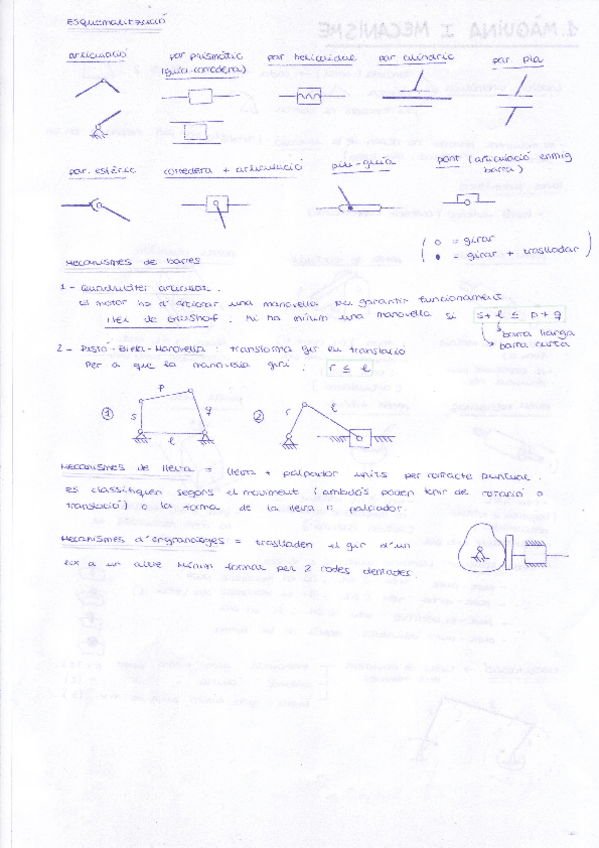 Esquematització
articulació
par prismàtic
(guia-corredera)
par helicoidal
par cilíndric
par pla
par esfèric
corredera + articulació
pin-guia
pont (articulació enmig
barra)
o = girar
• = girar + traslladar
Mecanismes de barres
1 - Quadrilàter articulat.
El motor ha d'accionar una manovella per garantir funcionament.
Llei de Grashof. Hi ha mínim una manovella si s + l ≤ p + q
barra llarga
barra curta
2 - Pistó-Biela-Manovella : transforma gir en translació
Per a que la manovella giri : r ≤ l
① s p q l
② r l
Mecanismes de lleva = lleva + palpador units per contacte puntual.
es classifiquen segons el moviment (ambdós poden tenir de rotació o
translació) o la forma de la lleva o palpador.
Mecanismes d'engranatges = traslladen el gir d'un
eix a un altre mínim format per 2 rodes dentades.